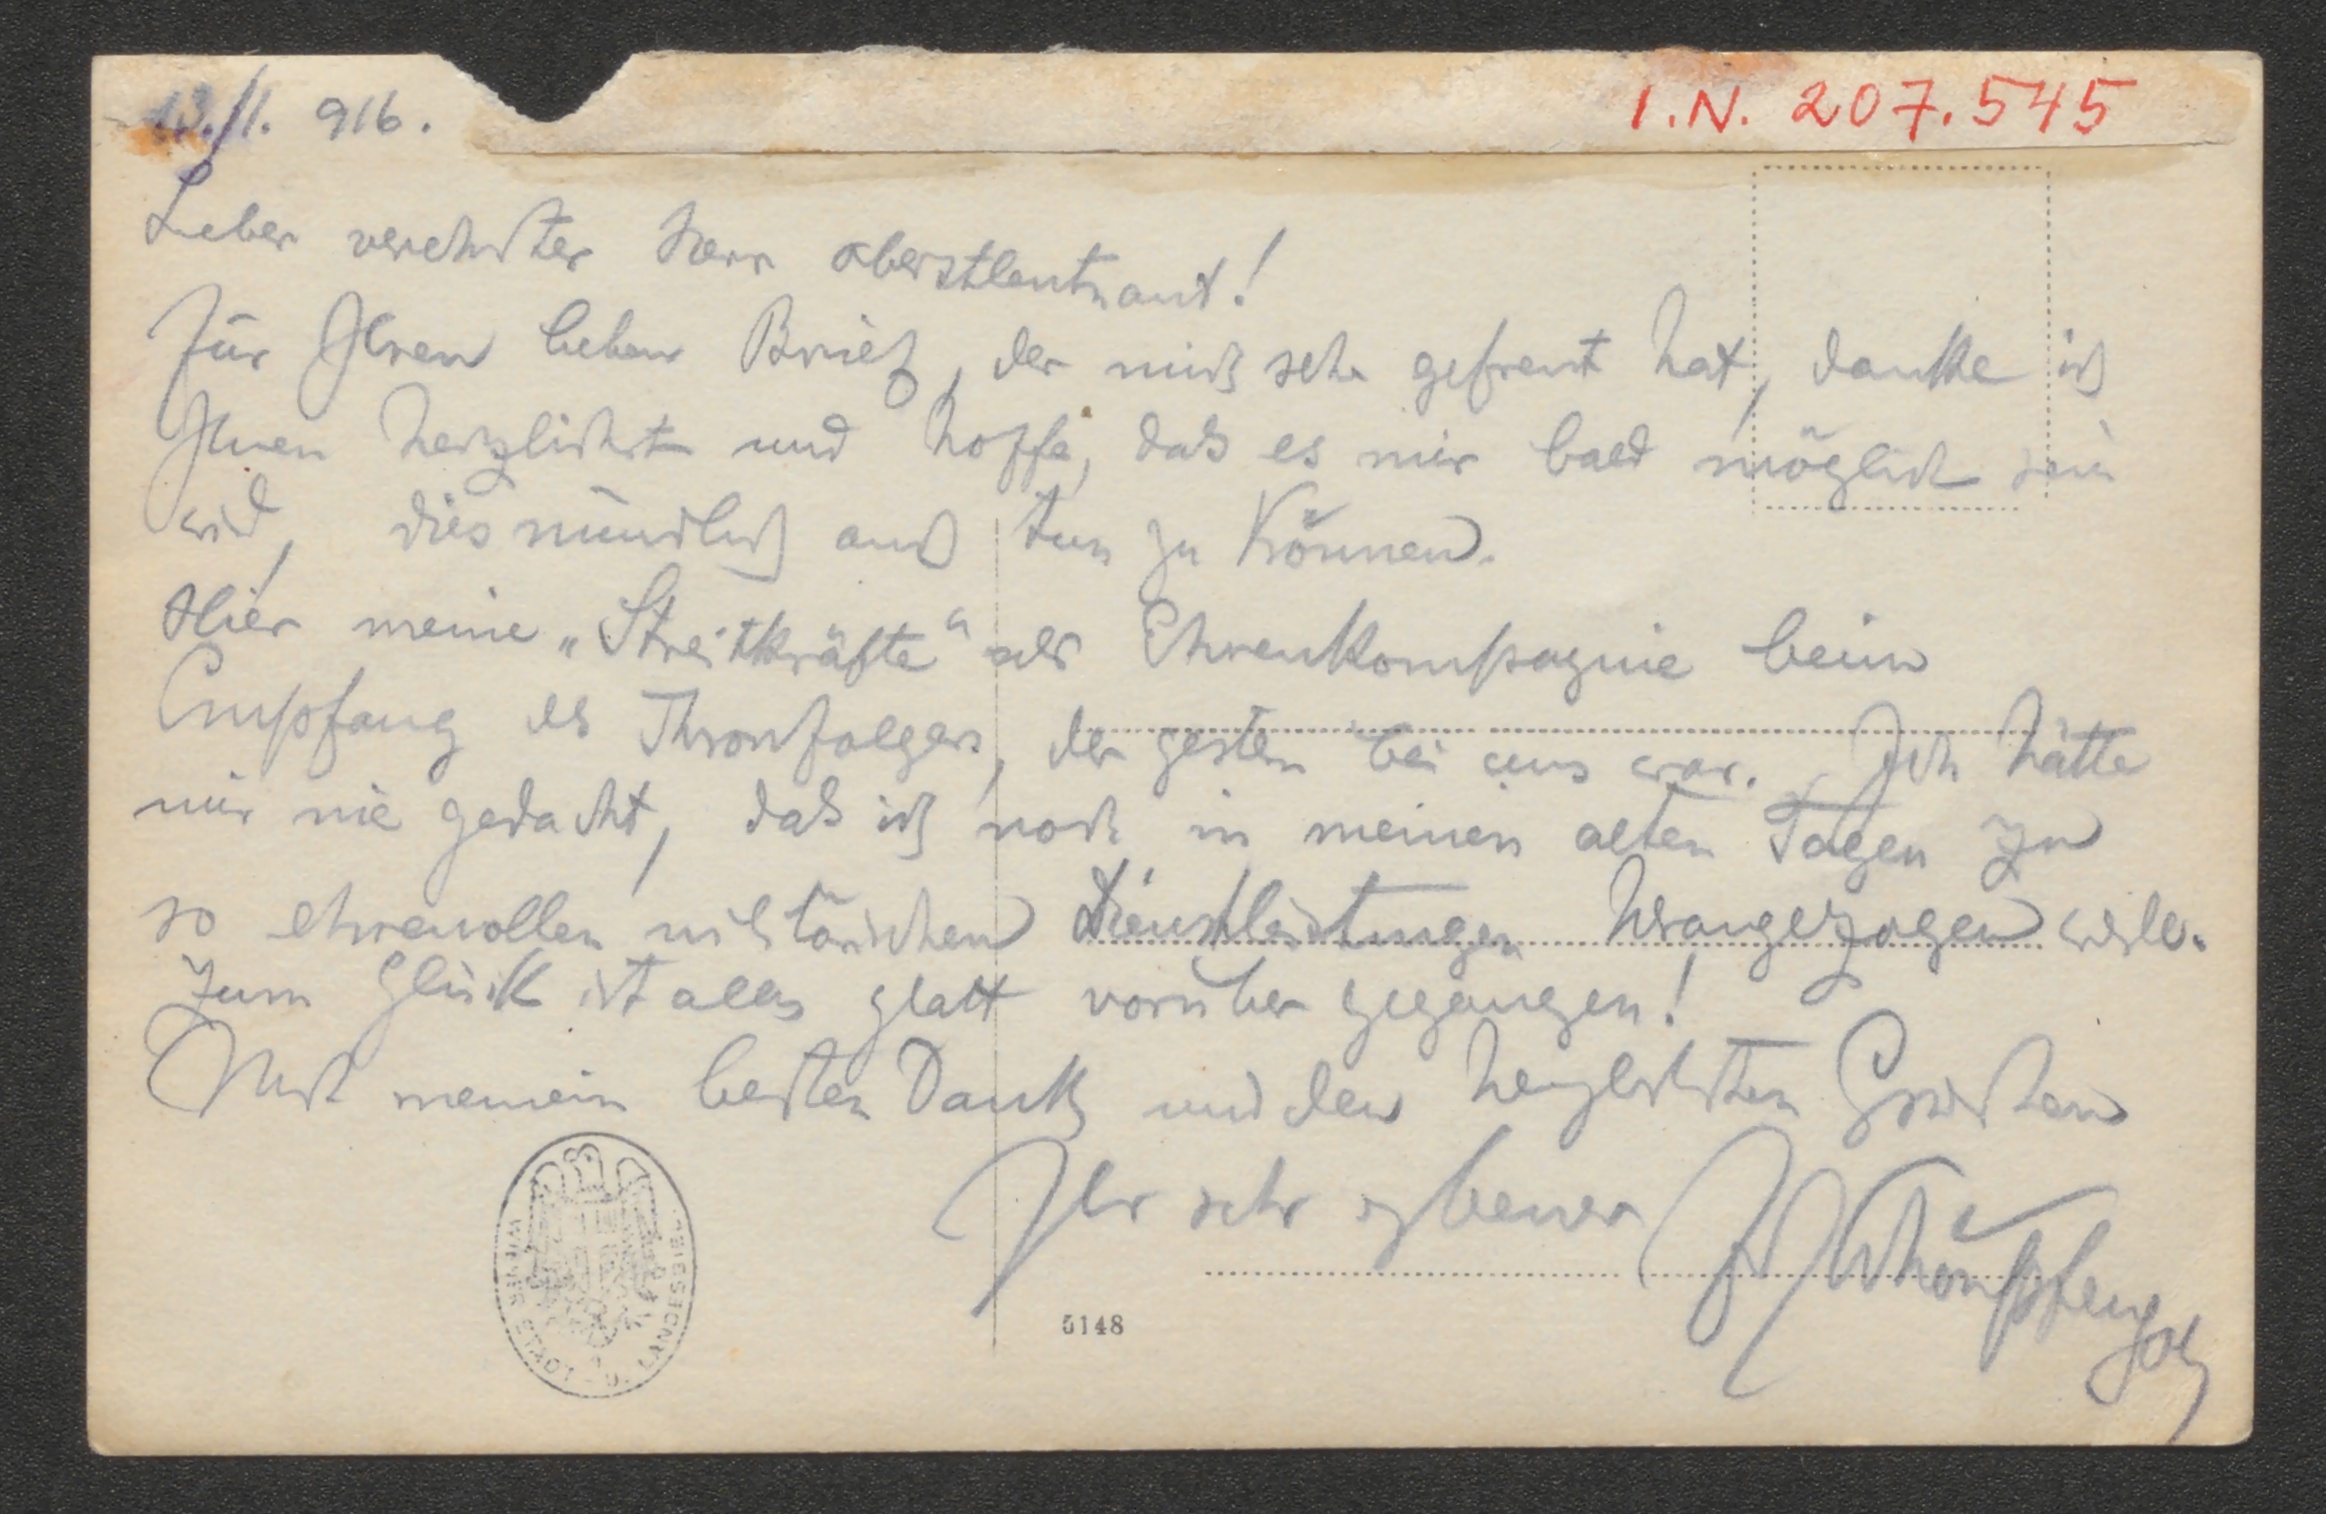 13./1. 916.
I.N. 207.545
Lieber verehrter Herr Oberstleutnant!
Für Ihren lieben Brief, der mich sehr gefreut hat, danke ich
Ihnen herzlichst und hoffe, daß es mir bald möglich sein
wird, dies mündlich auch tun zu können.
Hier meine „Streitkräfte“ als Ehrenkompagnie beim
Empfang des Thronfolgers, der gestern bei uns war. Ich hätte
mir nie gedacht, daß ich noch in meinen alten Tagen zu
so ehrenvollen militärischen Dienstleistungen herangezogen werde.
Zum Glück ist alles glatt vorüber gegangen!
Mit meinem besten Dank und den herzlichsten Grüßen
Ihr sehr ergebener
WIENER STADT - U. LANDESBIBL.
5148